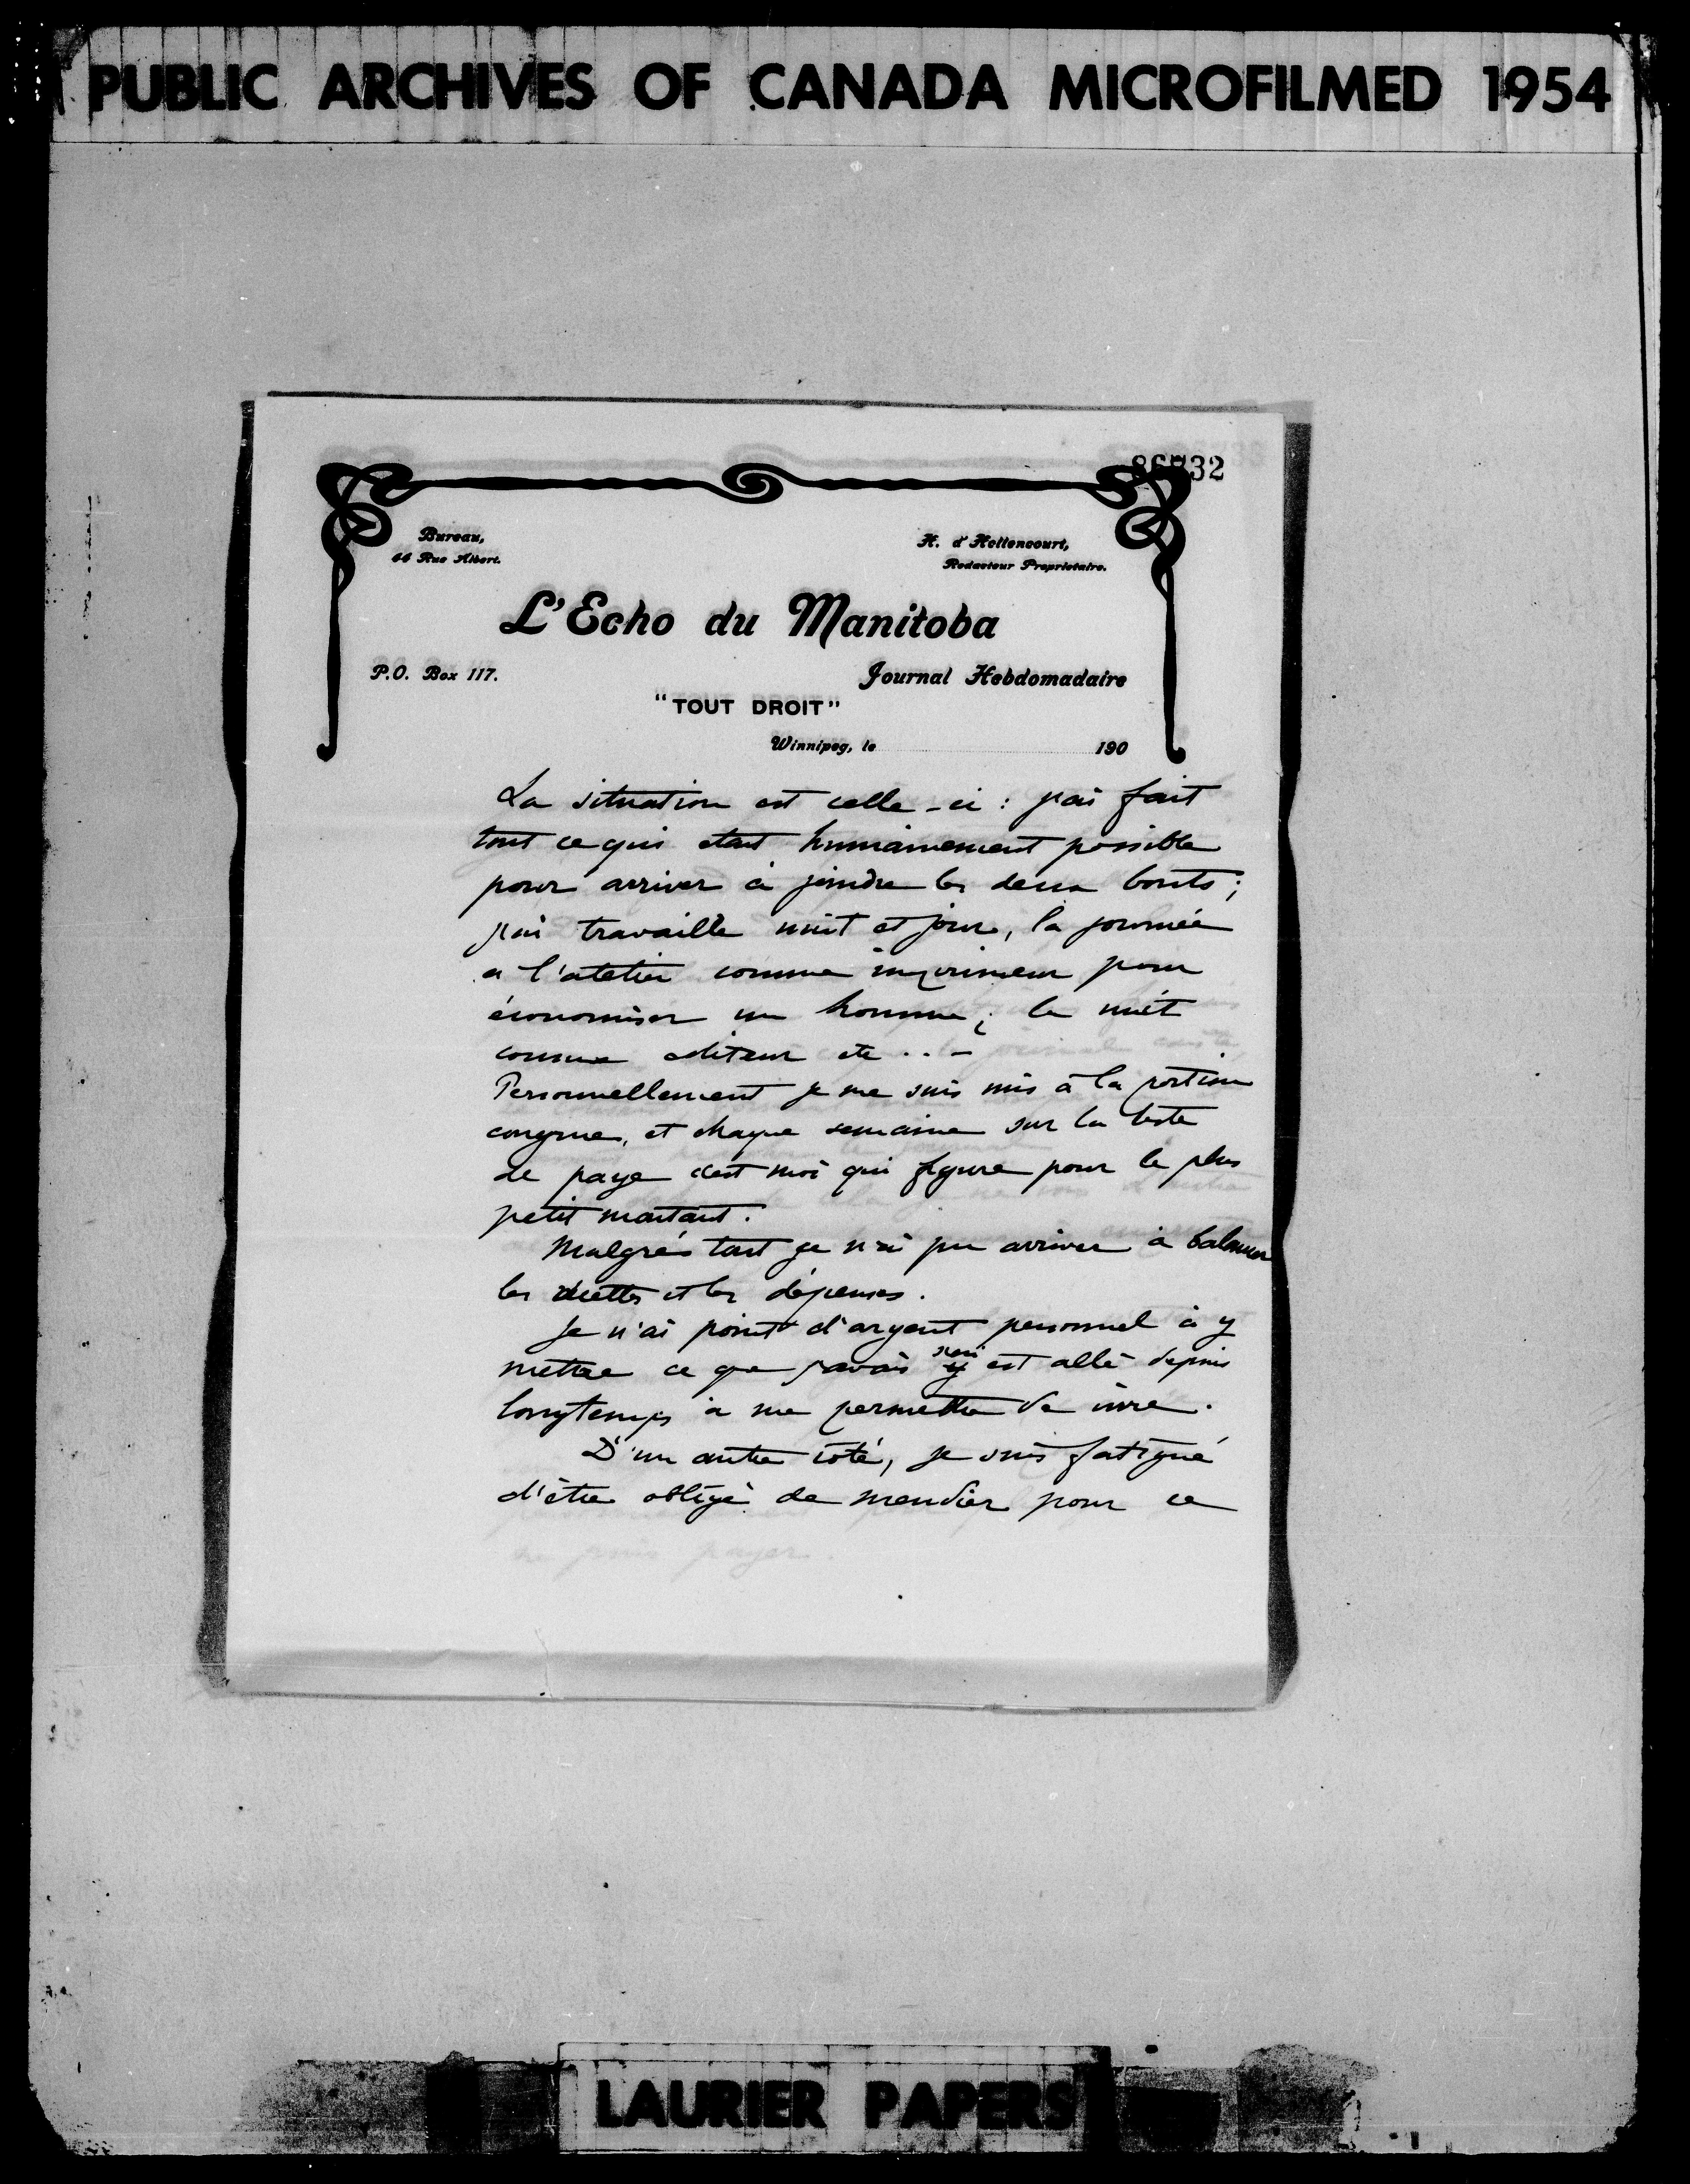 PUBLIC ARCHIVES OF CANADA MICROFILMED 1954
86732
Bureau,
44 Rue Albert.
H. d'Hellencourt,
Redacteur Proprietaire.
L'Echo du Manitoba
P.O. Box 117.
Journal Hebdomadaire
"TOUT DROIT"
Winnipeg, le 190
La situation est celle-ci : j'ai fait
tout ce qui etait humainement possible
pour arriver à joindre les deux bouts ;
j'ai travaillé nuit et jour, la journée
a l'atelier comme imprimeur pour
économiser un homme ; la nuit
comme editeur etc ...
Personnellement je me suis mis à la portion
congrue, et chaque semaine sur la liste
de paye c'est moi qui figure pour le plus
petit montant.
Malgrés tout je n'ai pu arriver à balancer
les recettes et les dépenses.
Je n'ai point d'argent personnel à y
mettre ce que j'avais s'en est allé depuis
longtemps à me permettre de vivre.
D'un autre coté, je suis fatigué
d'être obligé de mendier pour ce
ne puis payer.
LAURIER PAPERS